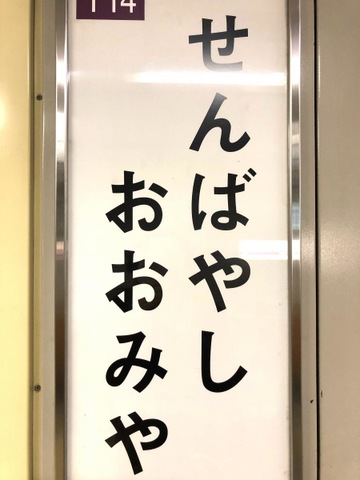 T14
せんばやし
おおみや